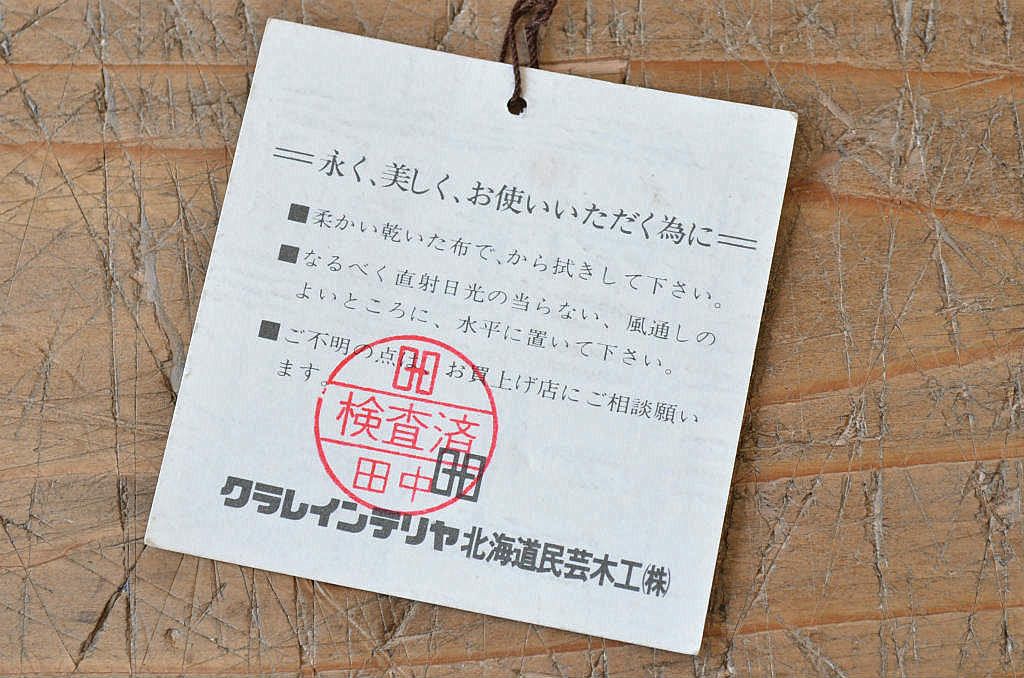 永く、美しく、お使いいただく為に
■柔かい乾いた布で、から拭きして下さい。
■なるべく直射日光の当らない、風通しの
よいところに、水平に置いて下さい。
■ご不明の点は、お買上げ店にご相談願い
ます。
検査済
田中
クラレインテリヤ北海道民芸木工(株)